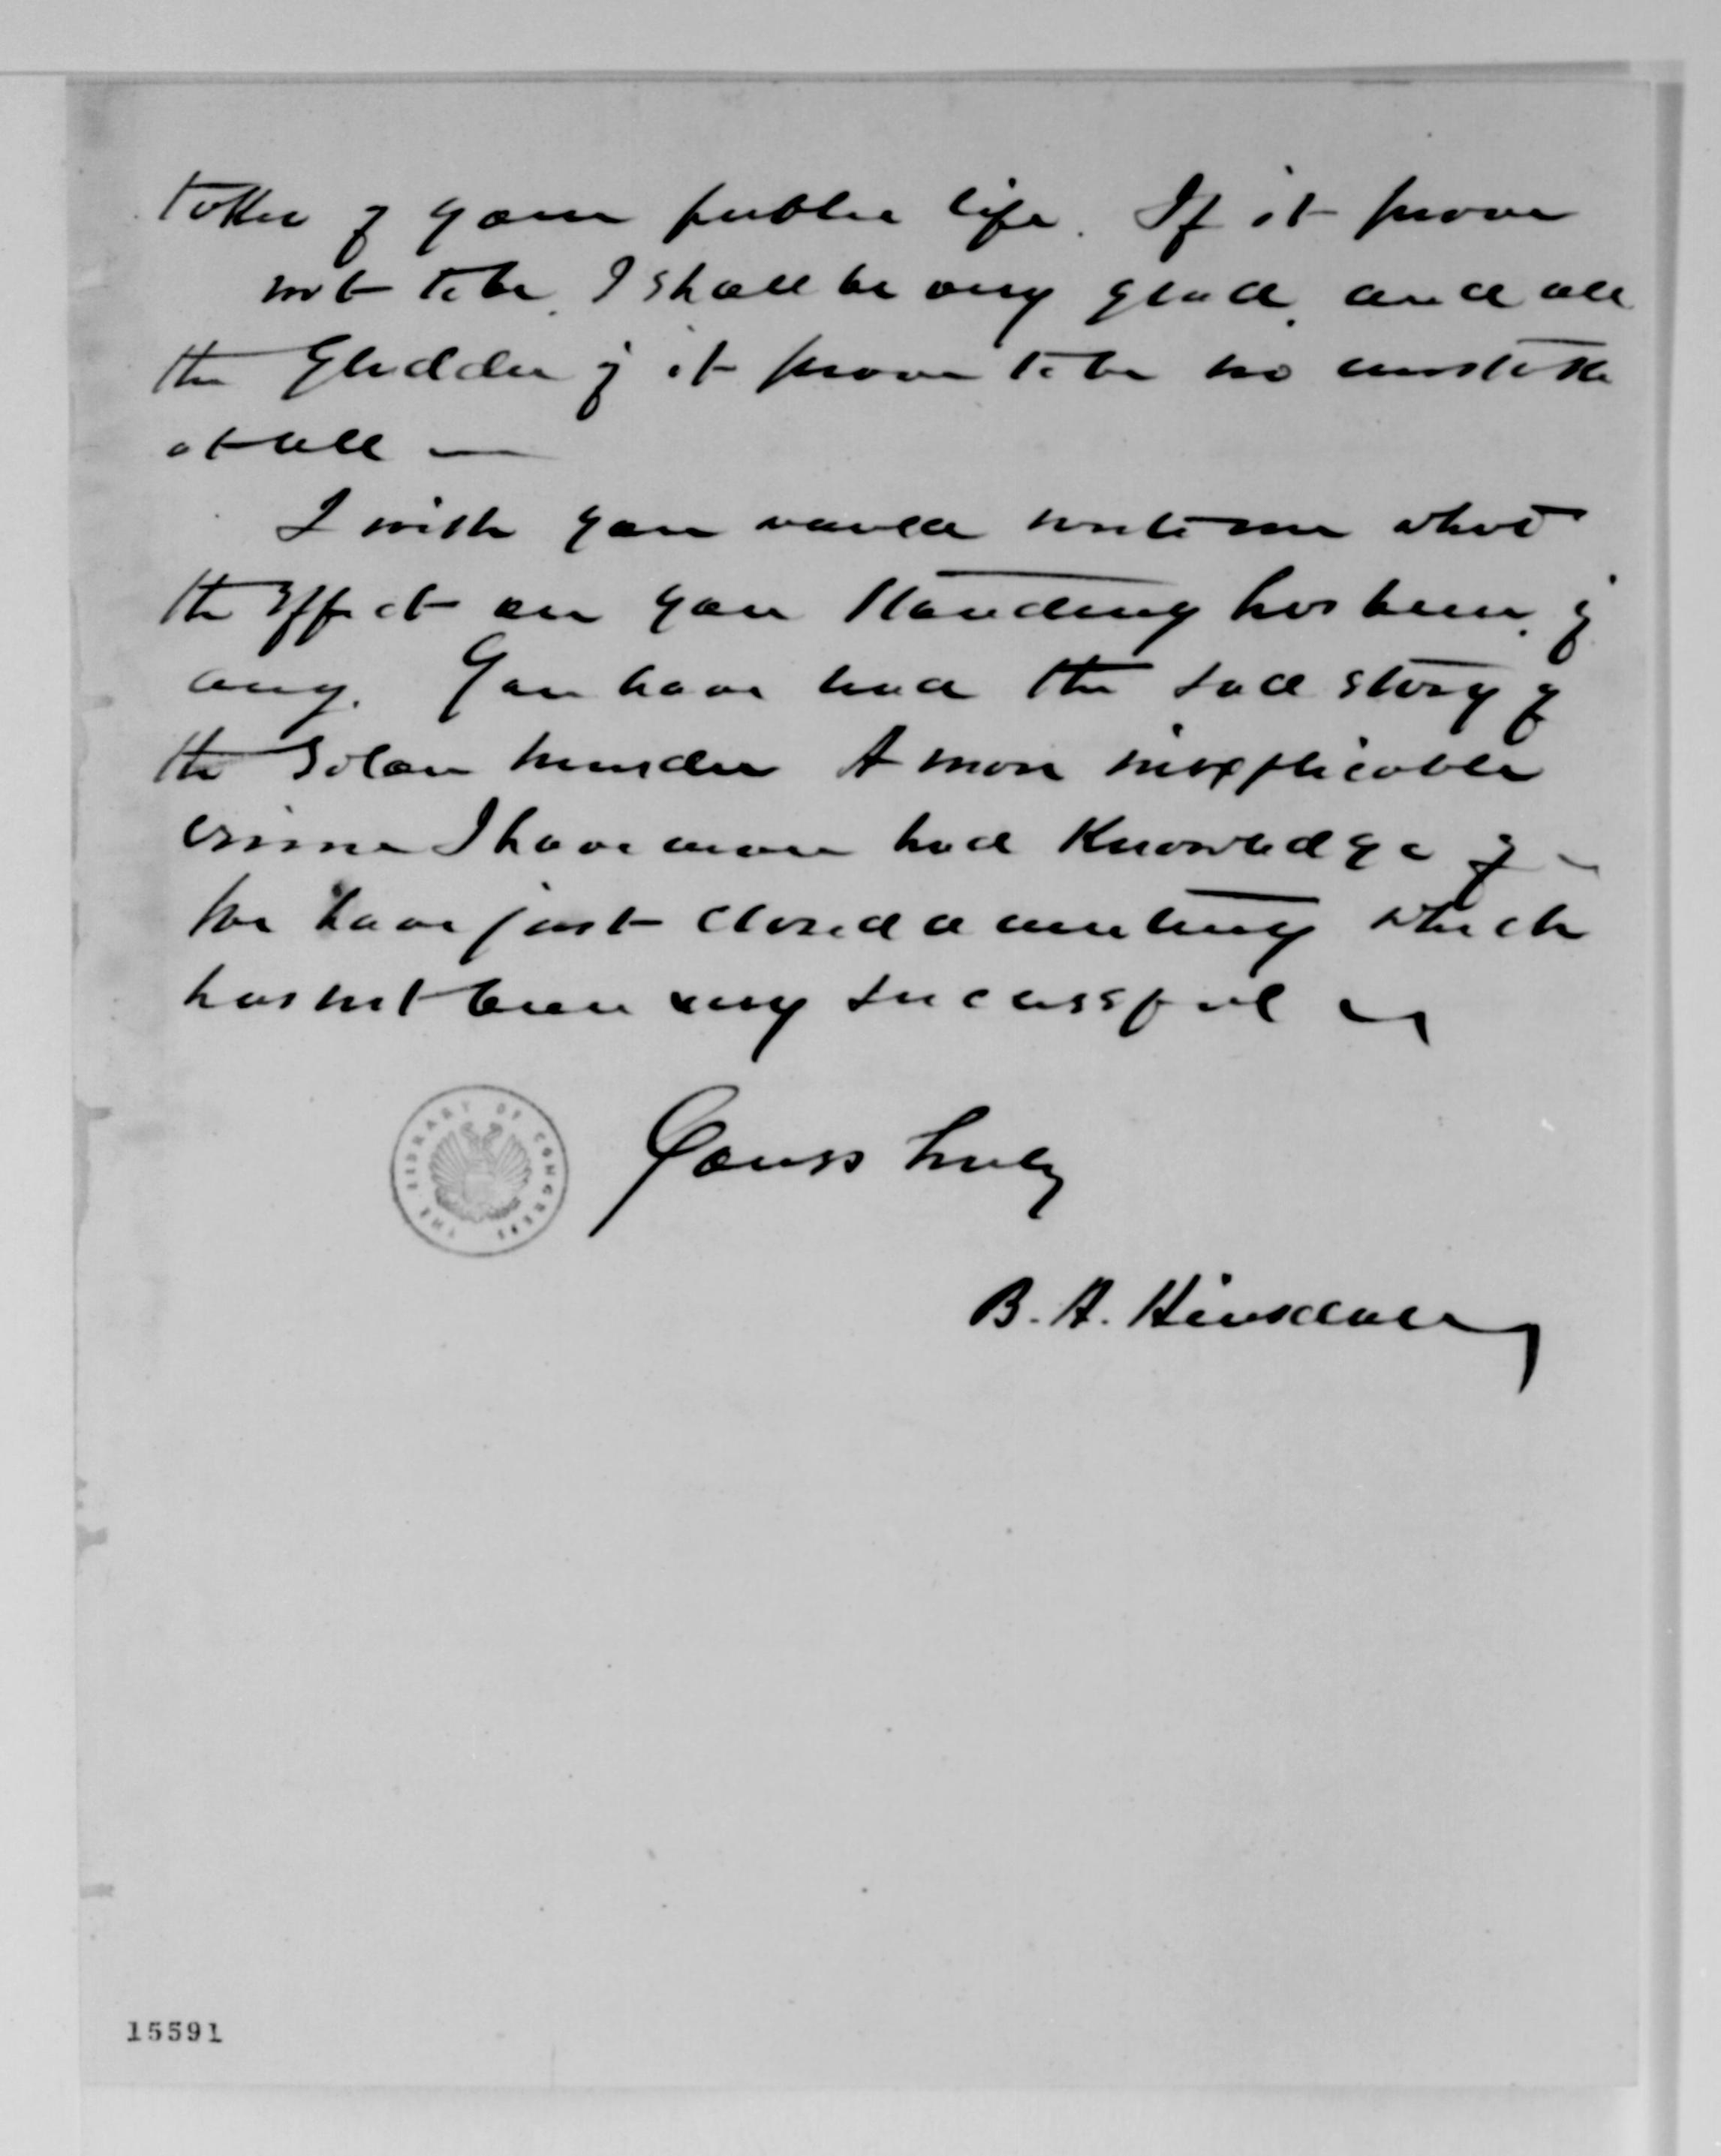 take of your public life. If it prove
not to be, I shall be very glad, and all
the gladder if it prove to be no mistake
at all —
I wish you would write me what
the effect on your standing has been, if
any. You have had the sad story of
the Solon murder A more inexplicable
crime I have never had knowledge of —
We have just closed a meeting which
has not been very successful
THE LIBRARY OF CONGRESS
Yours truly
B. A. Hinsdale
15591